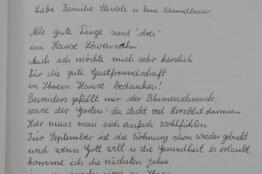 Liebe Familie Steidele u Fam. Schmidbauer,
Alle gute Dinge sind "drei"
im Hause Löwenzahn
Auch ich möchte mich sehr herzlich
für die gute Gastfreundschaft
in Ihrem Hause bedanken!
Besonders gefällt mir der Blumenschmuck,
sowie der Garten - da steckt viel Herzblut drinnen.
Hier muss man sich einfach wohlfühlen
Für September ist die Wohnung schon wieder gebucht
und wenn Gott will u die Gesundheit es erlaubt,
komme ich die nächsten Jahre